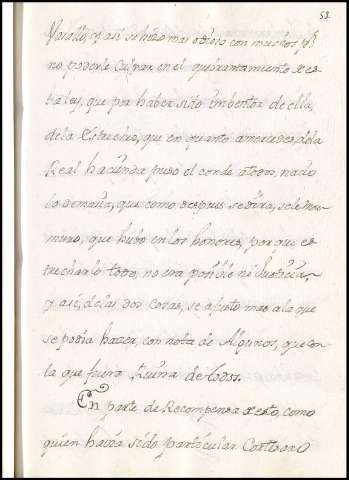 53
Vasallo, y asi se hizo mas odioso con muchos pr.
no poderle Culpar en el quebrantamiento de es-
ta ley, que por haber sido imbentor de ella,
de la Estrechez, que en quanto a mercedes, de la
Real hacienda puso el conde a todos, nacio
la demasia, que como despues se dira, se le mur-
muro, que hubo en los honores, porque es-
trecharlo todo, no era posible ni Justicia,
y asi, de las dos Cosas, se ajusto mas a la que
se podia hazer, con nota de Algunos, que con
la que fuera Ruina de todos.
En parte de Recompensa de esto, como
quien havia sido particular Cortesano